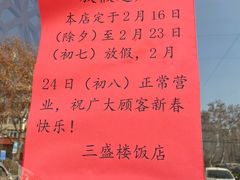 本店定于2月16日
(除夕)至2月23日
(初七)放假,2月
24日(初八)正常营
业,祝广大顾客新春
快乐!
三盛楼饭店